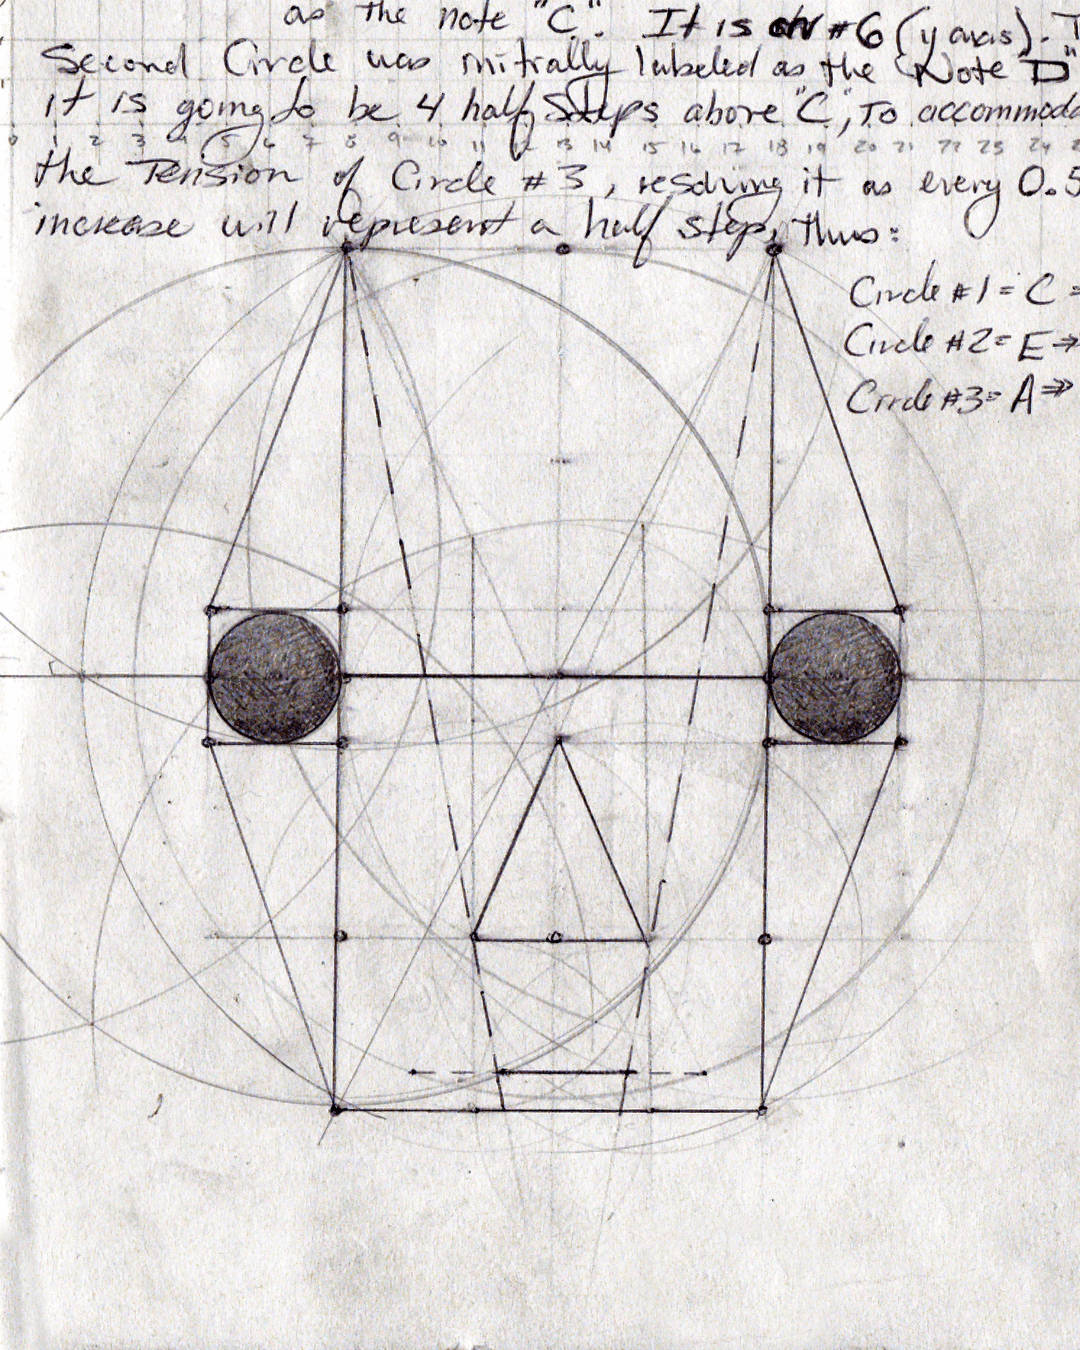 as the note "C". It is #6 (y axis). T
Second Circle was initially labeled as the Note "D"
it is going to be 4 half Steps above "C", To accommoda
0 1 2 3 4 5 6 7 8 9 10 11 12 13 14 15 16 17 18 19 20 21 22 23 24 2
the Tension of Circle #3, resolving it as every 0.5
increase will represent a half step, thus:
Circle #1 = C =
Circle #2 = E ⇒
Circle #3 = A ⇒